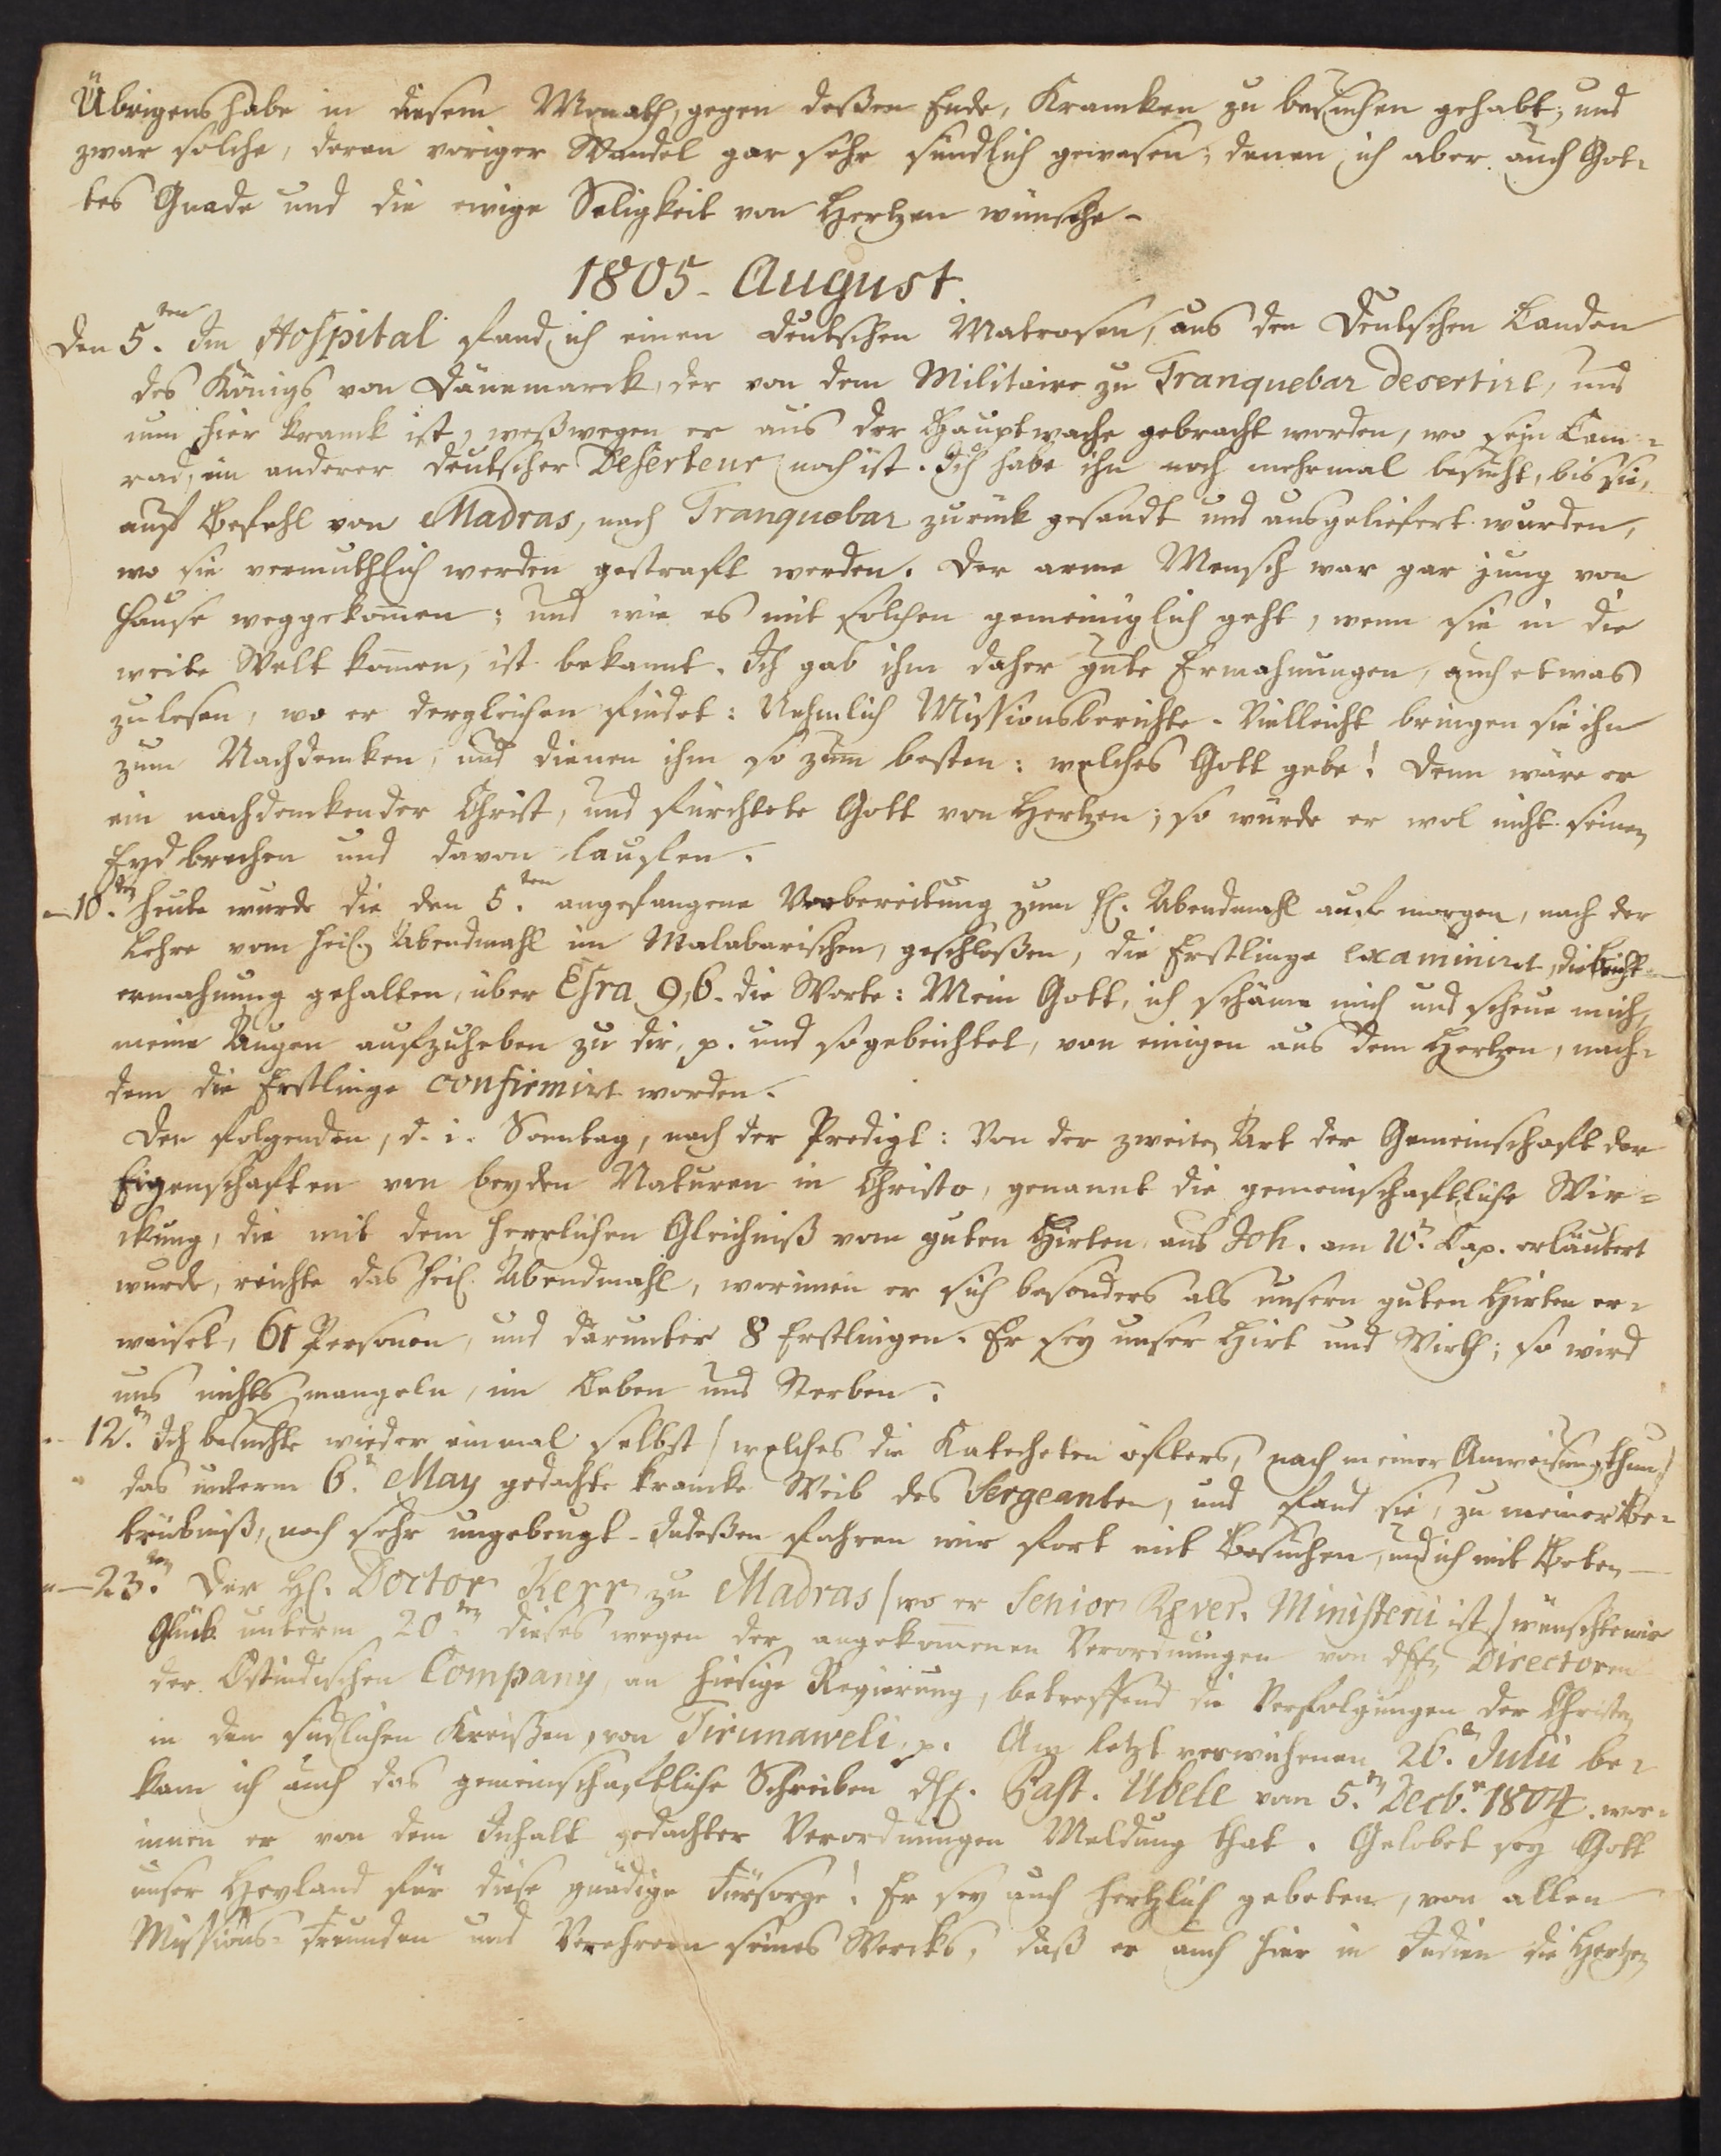 Übrigens habe in diesem Monath, gegen deßen Ende, Krancken zu besuchen gehabt, und
zwar solche, deren voriger Wandel gar sehr sündlich gewesen; denen ich aber auch Got-
tes Gnade und die ewige Seligkeit von Hertzen wünsche -
1805 - August.
Den 5.ten Im Hospital fand ich einen deutschen Matrosen, aus den Deutschen Landen
des Königs von Dännemarck, der von dem Militaire zu Tranquebar desertirt, und
nun hier kranck ist, weßwegen er aus der Hauptwache gebracht worden, wo sein Cam-
rad, ein anderer deutscher Deserteur noch ist. Ich habe ihn noch mehrmal besucht, bis sie,
auf Befehl von Madras, nach Tranquebar zurück gesandt und ausgeliefert wurden,
wo sie vermuthlich werden gestraft werden. Der arme Mensch war gar jung von
Hause weggekom̄en; und wie es mit solchen gemeiniglich geht, wenn sie in die
weite Welt kom̄en, ist bekannt. Ich gab ihm daher gute Ermahnungen, auch etwas
zu lesen, wo er dergleichen findet: Nehmlich Missionsberichte. Vielleicht bringen sie ihn
zum Nachdencken, und dienen ihm so zum besten: welches Gott gebe! Denn wäre er
ein nachdenckender Christ, und fürchtete Gott von Hertzen; so würde er wol nicht seinen
Eyd brechen und davon lauffen.
— 10.ten Heute wurde die den 5.ten angefangene Vorbereitung zum H. Abendmahl auf morgen, nach der
Lehre vom heil. Abendmahl im Malabarischen, geschloßen, die Erstlinge examinirt, die Beicht-
ermahnung gehalten, über Esra 9,6. die Worte: Mein Gott, ich schäme mich und scheue mich,
meine Augen aufzuheben zu dir, p. und so gebeichtet, von einigen aus dem Hertzen, nach-
dem die Erstlinge confirmirt worden.
Den folgenden, d. i. Sonntag, nach der Predigt: Von der zweiten Art der Gemeinschaft der
Eigenschaften von beyden Naturen in Christo, genannt die gemeinschaftliche Wir-
ckung, die mit dem herrlichen Gleichniß vom guten Hirten aus Joh. am 10.ten Cap. erläutert
wurde, reichte das heil. Abendmahl, worinnen er sich besonders als unsern guten Hirten er-
weiset, 61 Personen, und darunter 8 Erstlingen. Er sey unser Hirt und Wirth; so wird
uns nichts mangeln, im Leben und Sterben.
— 12.ten Ich besuchte wieder einmal selbst / welches die Katecheten öfters, nach meiner Anweisung, thun /
das unterm 6.ten May gedachte krancke Weib des Sergeanten, und fand sie, zu meiner Be-
trübniß, noch sehr ungebeugt. Indeßen fahren wir fort mit Besuchen, und ich mit Beten —
— 23.ten Der H. Doctor Kerr zu Madras / wo er Senior Rever. Ministerii ist / wünschte mir
Glück unterm 20.ten dieses wegen der angekom̄enen Verordnungen von den Directoren
der Ostindischen Company, an hiesige Regierung, betreffend die Verfolgungen der Christen
in den südlichen Kreißen, von Tirunaweli, p. Am letzt verwichenen 26.ten Julii be-
kam ich auch das gemeinschaftliche Schreiben d. H. Past. Übele vom 5.ten Decb.r 1804. wor-
innen er von dem Inhalt gedachter Verordnungen Meldung that. Gelobet sey Gott
unser Heyland für diese gnädige Fürsorge! Er sey auch hertzlich gebeten, von allen
Missions-Freunden und Verehrern seines Wercks, daß er auch hier in Indien die Hertzen